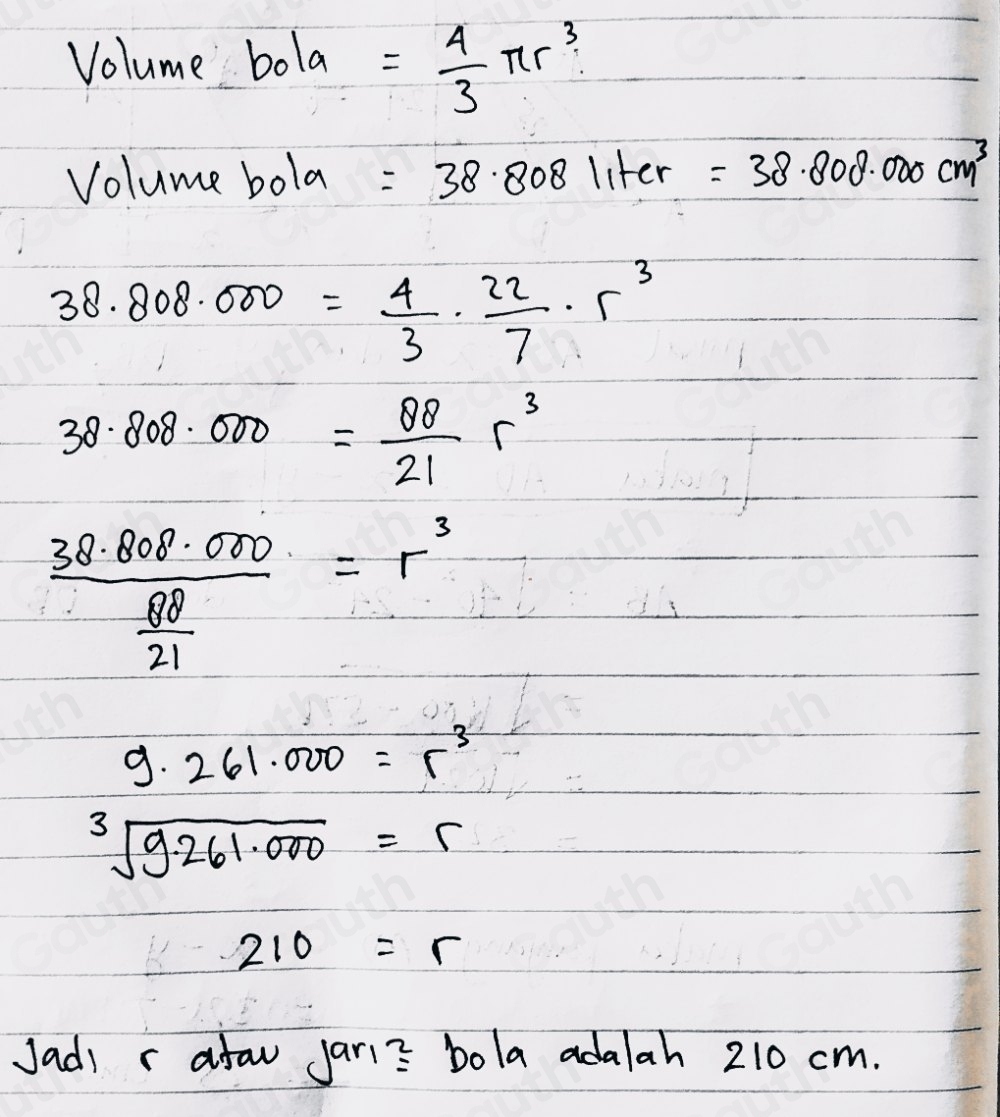 Volume bola = 4/3 πr³
Volume bola = 38.808 liter = 38.808.000 cm³
38.808.000 = 4/3 . 22/7 . r³
38.808.000 = 88/21 r³
38.808.000 / 88/21 = r³
9.261.000 = r³
³√9.261.000 = r
210 = r
Jadi r atau jari² bola adalah 210 cm.